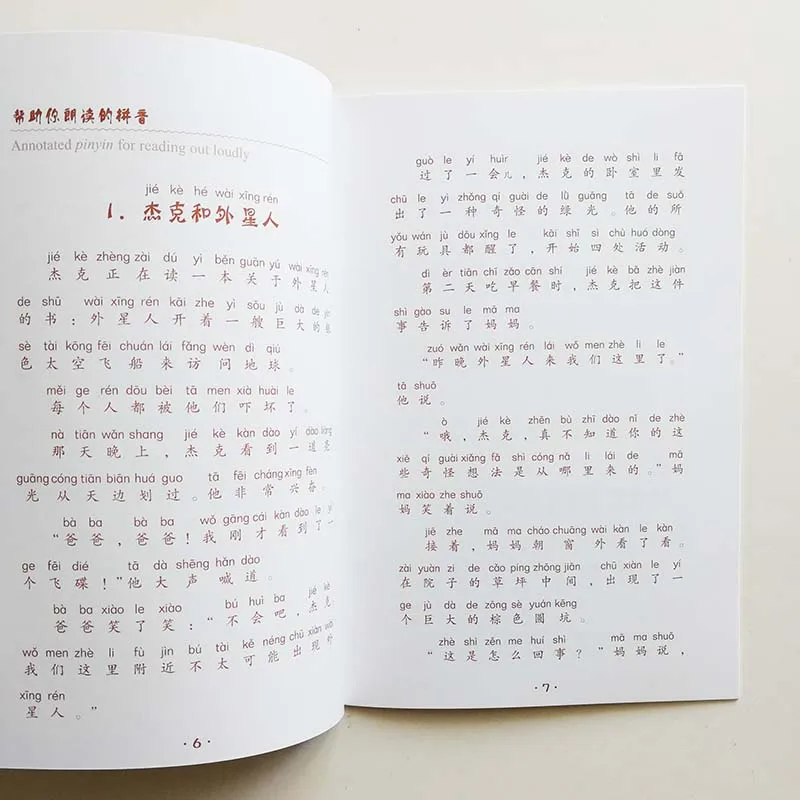 帮助你朗读的拼音
Annotated pinyin for reading out loudly
jié kè hé wài xīng rén
1. 杰克和外星人
jié kè zhèng zài dú yì běn guān yú wài xīng rén
杰克正在读一本关于外星人
de shū wài xīng rén kāi zhe yì sōu jù dà de
的书：外星人开着一艘巨大的
sè tài kōng fēi chuán lái fǎng wèn dì qiú
色太空飞船来访问地球。
měi ge rén dōu bèi tā men xià huài le
每个人都被他们吓坏了。
nà tiān wǎn shang jié kè kàn dào yí dào
那天晚上，杰克看到一道亮
guāng cóng tiān biān huá guo tā fēi cháng xīng fèn
光从天边划过。他非常兴奋。
bà ba bà ba wǒ gāng cái kàn dào le yí
“爸爸，爸爸！我刚才看到了一
ge fēi dié tā dà shēng hǎn dào
个飞碟！”他大声喊道。
bà ba xiào le xiào bú huì ba jié kè
爸爸笑了笑：“不会吧，杰克
wǒ men zhè lǐ fù jìn bú tài kě néng chū xiàn wài
我们这里附近不太可能出现外
xīng rén
星人。”
·6·
guò le yí huìr jié kè de wò shì li fā
过了一会儿，杰克的卧室里发
chū le yì zhǒng qí guài de lǜ guāng tā de suǒ
出了一种奇怪的绿光。他的所
yǒu wán jù dōu xǐng le kāi shǐ sì chù huó dòng
有玩具都醒了，开始四处活动。
dì èr tiān chī zǎo cān shí jié kè bǎ zhè jiàn
第二天吃早餐时，杰克把这件
shì gào su le mā ma
事告诉了妈妈。
zuó wǎn wài xīng rén lái wǒ men zhè li le
“昨晚外星人来我们这里了。”
tā shuō
他说。
ò jié kè zhēn bù zhī dào nǐ de zhè
“哦，杰克，真不知道你的这
xiē qí guài xiǎng fǎ shì cóng nǎ li lái de mā
些奇怪想法是从哪里来的。”妈
ma xiào zhe shuō
妈笑着说。
jiē zhe mā ma cháo chuāng wài kàn le kàn
接着，妈妈朝窗外看了看。
zài yuàn zi de cǎo píng zhōng jiān chū xiàn le yí
在院子的草坪中间，出现了一
ge jù dà de zōng sè yuán kēng
个巨大的棕色圆坑。
zhè shì zěn me huí shì mā ma shuō
“这是怎么回事？”妈妈说，
·7·